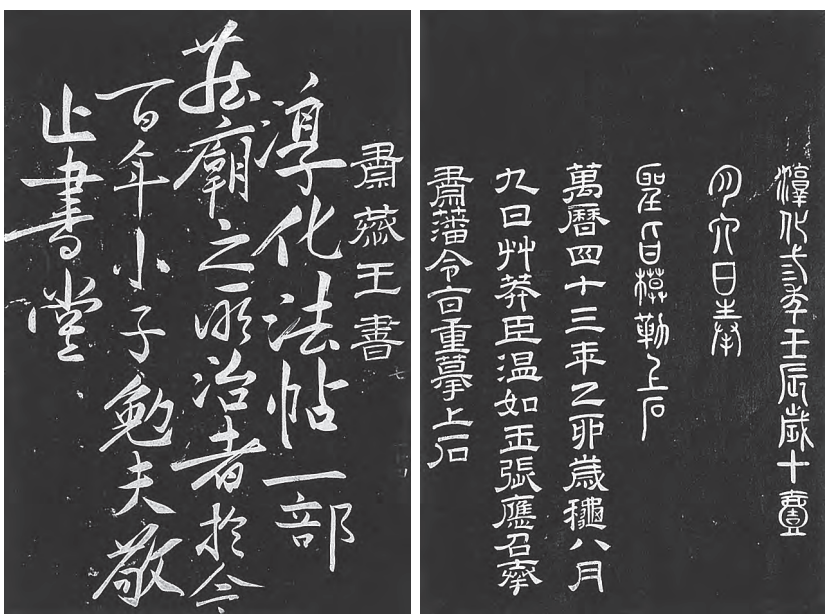 淳化弎年壬辰歲十壹
月六日奉
聖旨模勒上石
萬曆四十三年乙卯歲穐八月
九日艸莽臣溫如玉張應召奉
肅藩令旨重摹上石
肅恭王書
淳化法帖一部
莊廟之所治者於今
百年小子勉夫敬
止書堂